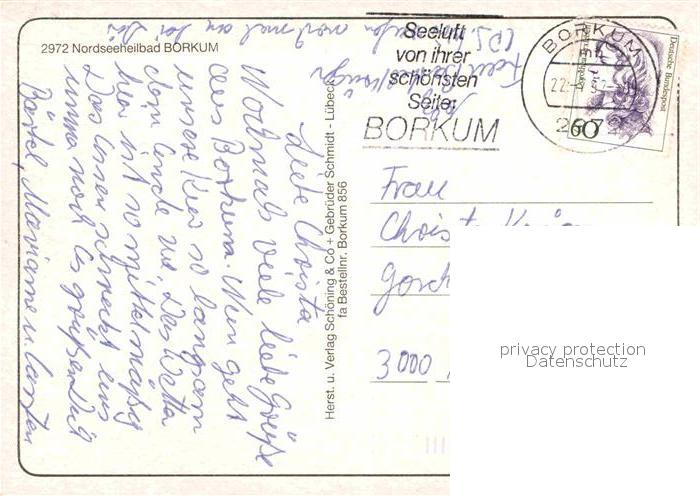 2972 Nordseeheilbad BORKUM
Liebe Christa
Nochmals viele liebe Grüße
aus Borkum. Nun geht
unsere Kur so langsam
dem Ende zu. Das Wetter
hier ist so mittelmäßig
Das Essen schmeckt uns
immer noch. Es grüßen Dich
Bärbel, Marianne u. Carsten
noch mal an bei Dir
Herst. u. Verlag Schöning & Co + Gebrüder Schmidt - Lübeck
fa Bestellnr. Borkum 856
Seeluft
von ihrer
schönsten
Seite:
BORKUM
BORKUM
22
2972
Deutsche Bundespost
60
Frau
Christa
3000
privacy protection
Datenschutz